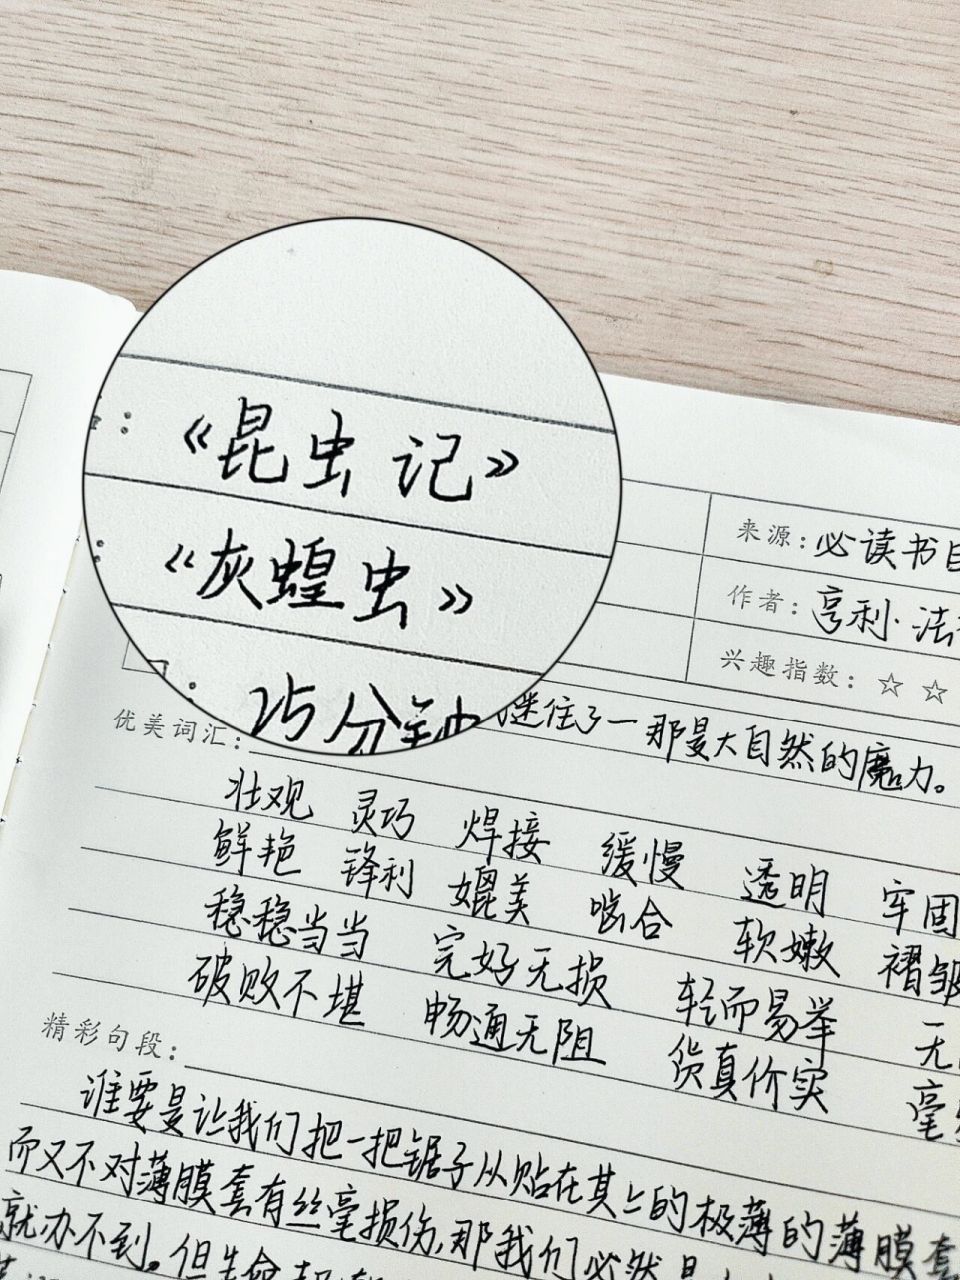 《昆虫记》
《灰蝗虫》
25分钟
来源：必读书目
作者：亨利·法
兴趣指数：☆☆
迷住了一那是大自然的魔力。
优美词汇：
壮观 灵巧 焊接 缓慢 透明 牢固
鲜艳 锋利 媲美 啮合 软嫩 褶皱
稳稳当当 完好无损 轻而易举 无
破败不堪 畅通无阻 货真价实 毫
精彩句段：
谁要是让我们把一把锯子从贴在其上的极薄的薄膜套
而又不对薄膜套有丝毫损伤,那我们必然是
就办不到。但生命却